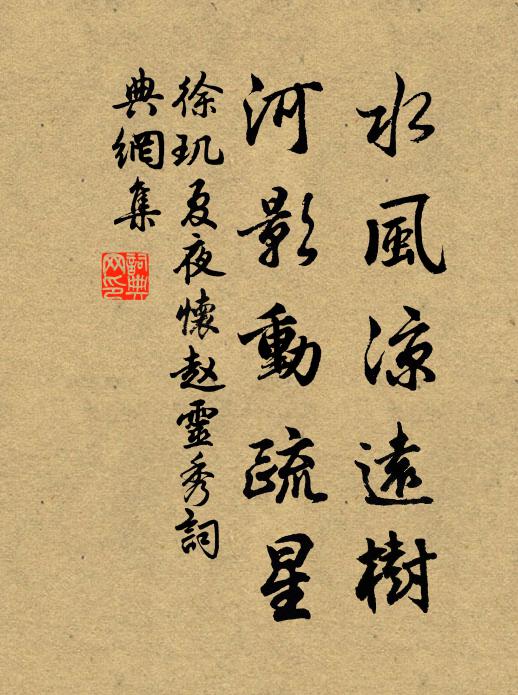 水風涼遠樹
河影動疏星
徐玑夏夜懷赵靈秀詞
典網集
詞典
网印